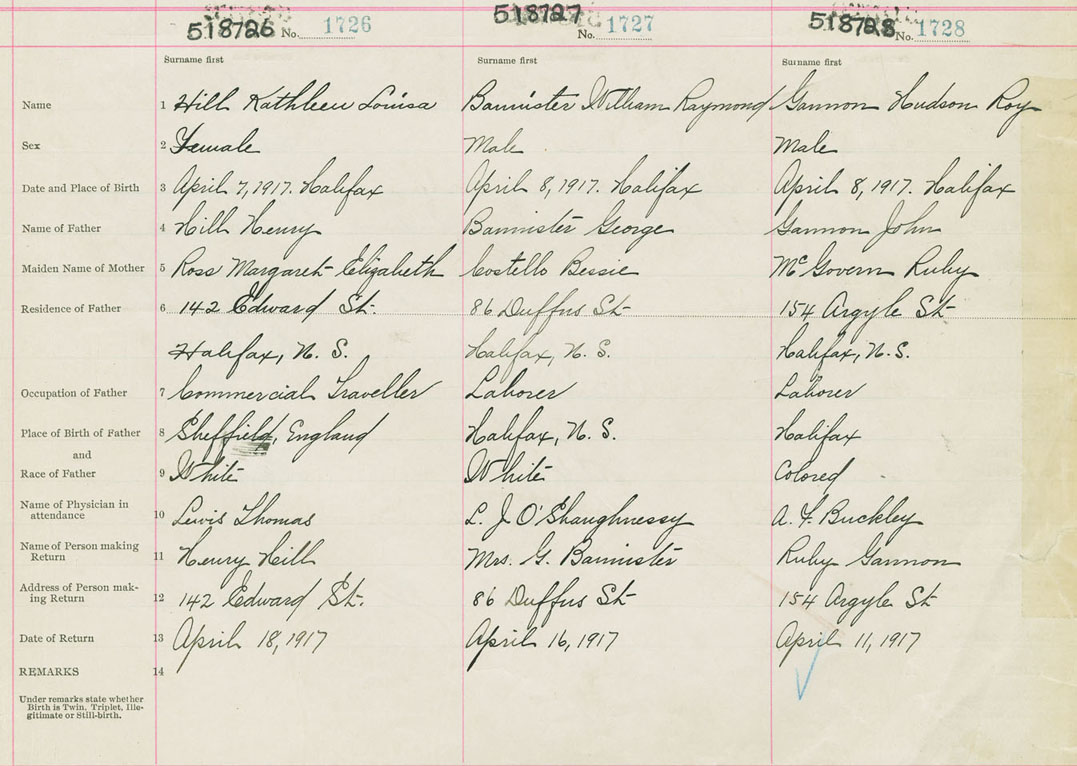 518726 No. 1726 518727 No. 1727 518728 No. 1728
Surname first Surname first Surname first
Name 1 Hill Kathleen Louisa Bannister William Raymond Gannon Hudson Roy
Sex 2 Female Male Male
Date and Place of Birth 3 April 7, 1917. Halifax April 8, 1917. Halifax April 8, 1917. Halifax
Name of Father 4 Hill Henry Bannister George Gannon John
Maiden Name of Mother 5 Ross Margaret Elizabeth Costello Bessie McGovern Ruby
Residence of Father 6 142 Edward St. 86 Duffus St 154 Argyle St
Halifax, N. S. Halifax, N. S. Halifax, N. S.
Occupation of Father 7 Commercial Traveller Laborer Laborer
Place of Birth of Father 8 Sheffield, England Halifax, N. S. Halifax
and
Race of Father 9 White White Colored
Name of Physician in
attendance 10 Lewis Thomas L. J O'Shaughnessy A. F. Buckley
Name of Person making
Return 11 Henry Hill Mrs. G. Bannister Ruby Gannon
Address of Person mak-
ing Return 12 142 Edward St. 86 Duffus St 154 Argyle St
Date of Return 13 April 18, 1917 April 16, 1917 April 11, 1917
REMARKS 14
Under remarks state whether
Birth is Twin, Triplet, Ille-
gitimate or Still-birth.